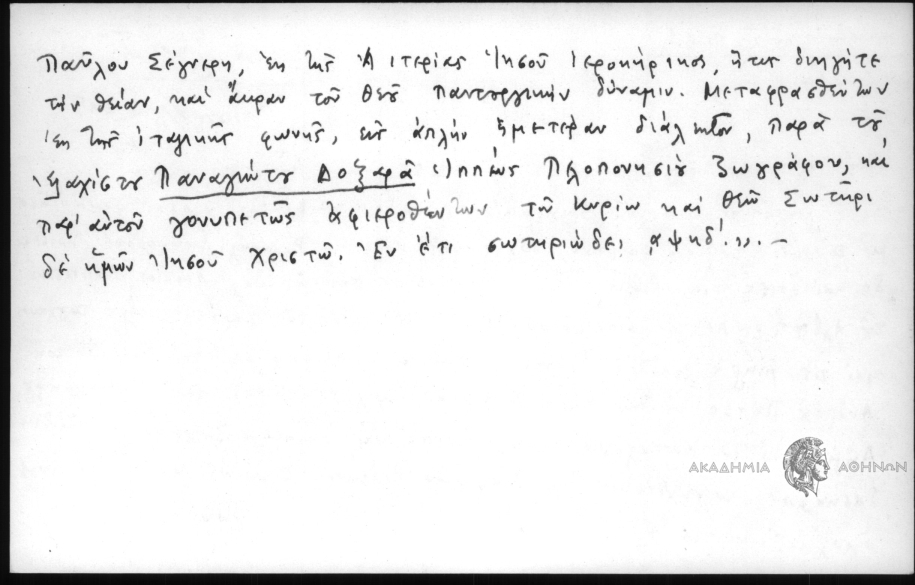 Παῦλου Σέγνερη, ἐκ τῆς Ἁιτερίας Ἰησοῦ ἱεροκήρικος, ἥτις διηγήτε
τὴν θείαν, καὶ ἄκραν τοῦ θεοῦ παντουργικὴν δύναμιν. Μεταφρασθέντων
ἐκ τῆς ἰταλικῆς φωνῆς, εἰς ἁπλὴν ἡμετέραν διάλεκτον, παρὰ τοῦ
ἐλαχίστου Παναγιώτου Δοξαρᾶ Ἱππέως Πελοπονησίου ζωγράφου, καὶ
παρ' αὐτοῦ γονυπετῶς ἀφιεροθέντων τῶ Κυρίω καὶ θεῶ Σωτῆρι
δὲ ἡμῶν Ἰησοῦ Χριστῶ. Ἐν ἔτι σωτηριώδει ͵αψκδ΄.,,. –
ΑΚΑΔΗΜΙΑ ΑΘΗΝΩΝ